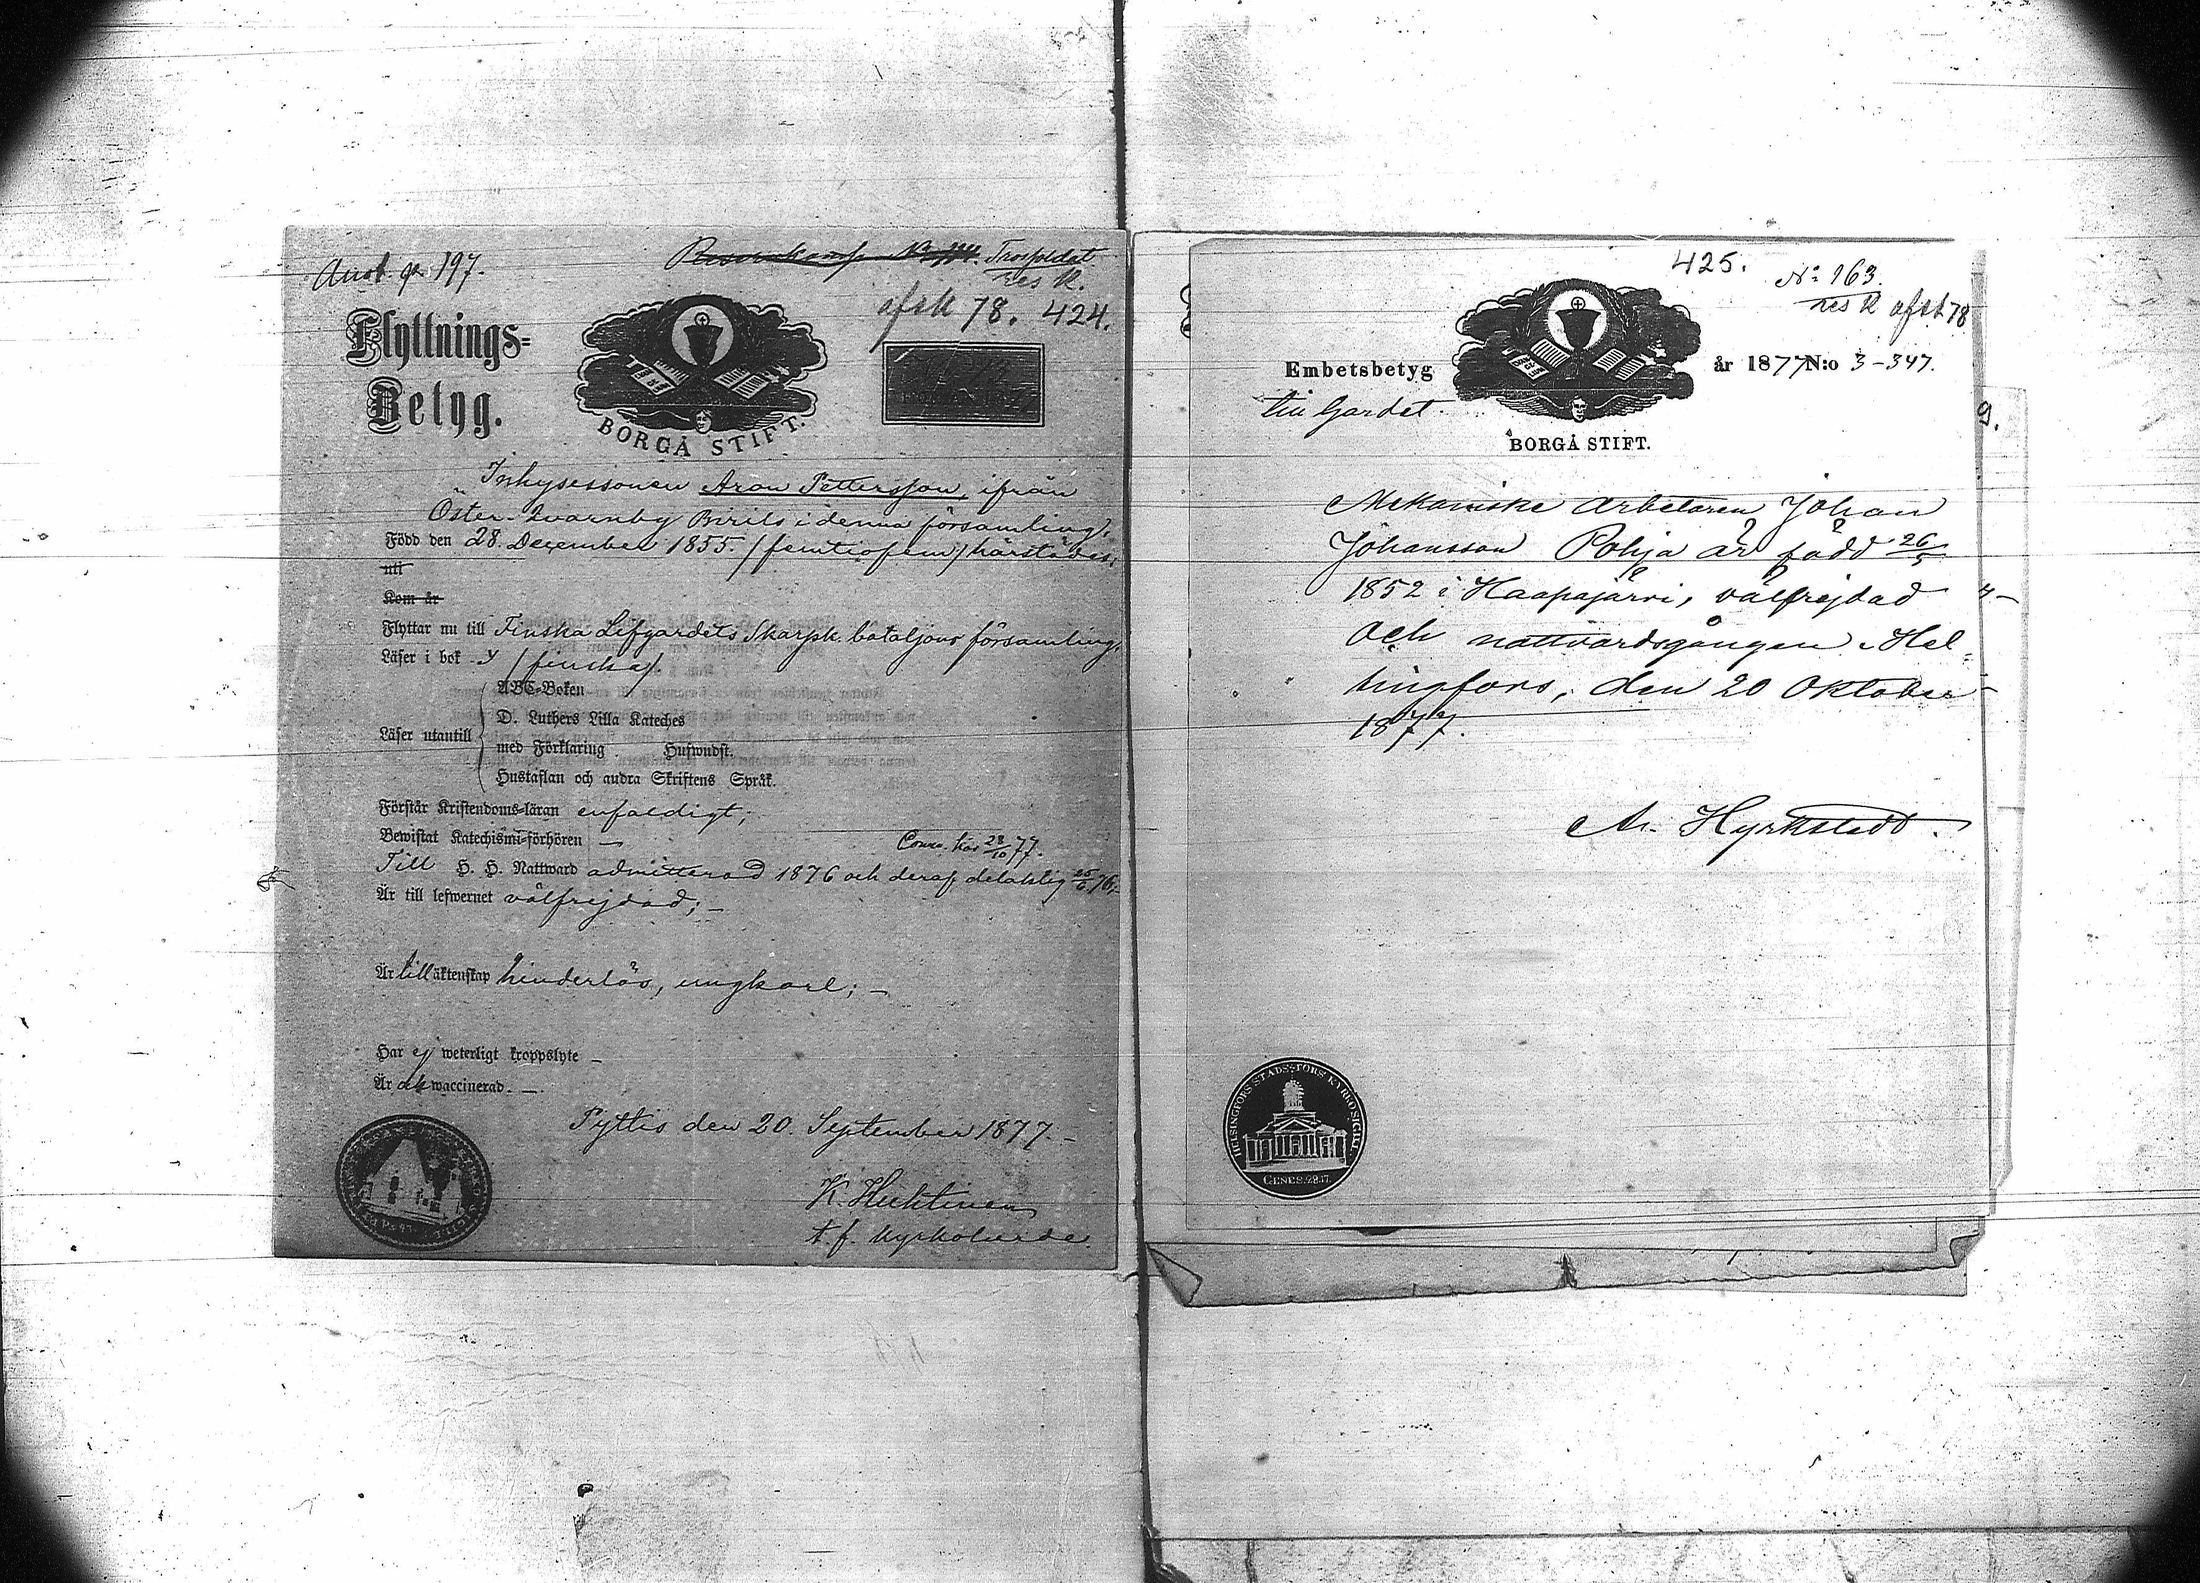 Anot. p. 197.
Reservkomp. No 114. Trossoldat
res k.
afsk 78. 424.
Flyttnings-
Betyg.
BORGÅ STIFT.
Inhysessonen Aron Pettersson, ifrån
Öster-Kvarnby Birils i denna församling,
Född den 28. December 1855. /femtiofem/ härstädes;
uti
Kom år
Flyttar nu till Finska Lifgardets Skarpsk. bataljons församling,
Läser i bok y /finska/.
ABC-Boken
D. Luthers Lilla Kateches
Läser utantill
med Förklaring Huswudst.
Hustaflan och andra Skriftens Språk.
Förstår Kristendoms-läran enfaldigt;
Bewistat Katechismi-förhören —
Comm. har 28/10 77.
Till H. H. Nattward admitterad 1876 och deraf delaktig 25/6 76;
Är till lefwernet välfrejdad; —
Är till äktenskap hinderlös, ungkarl; —
Har ej weterligt kroppslyte —
Är ok waccinerad. —
Pyttis den 20. September 1877. —
K. Huhtinen
t. f. kyrkoherde.
425. No 163.
res k afsk 78
Embetsbetyg år 1877 N:o 3-347.
till Gardet.
BORGÅ STIFT.
9.
Mekaniske Arbetaren Johan
Johansson Pohja är född 26/5
1852 i Haapajärvi, välfrejdad
och nattvardsgången. Hel-
singfors, den 20 Oktober
1877.
A. Hyrkstedt.
HELSINGFORS STADS-FÖRS. KYRKOSIGILL.
GENES. 28.17.